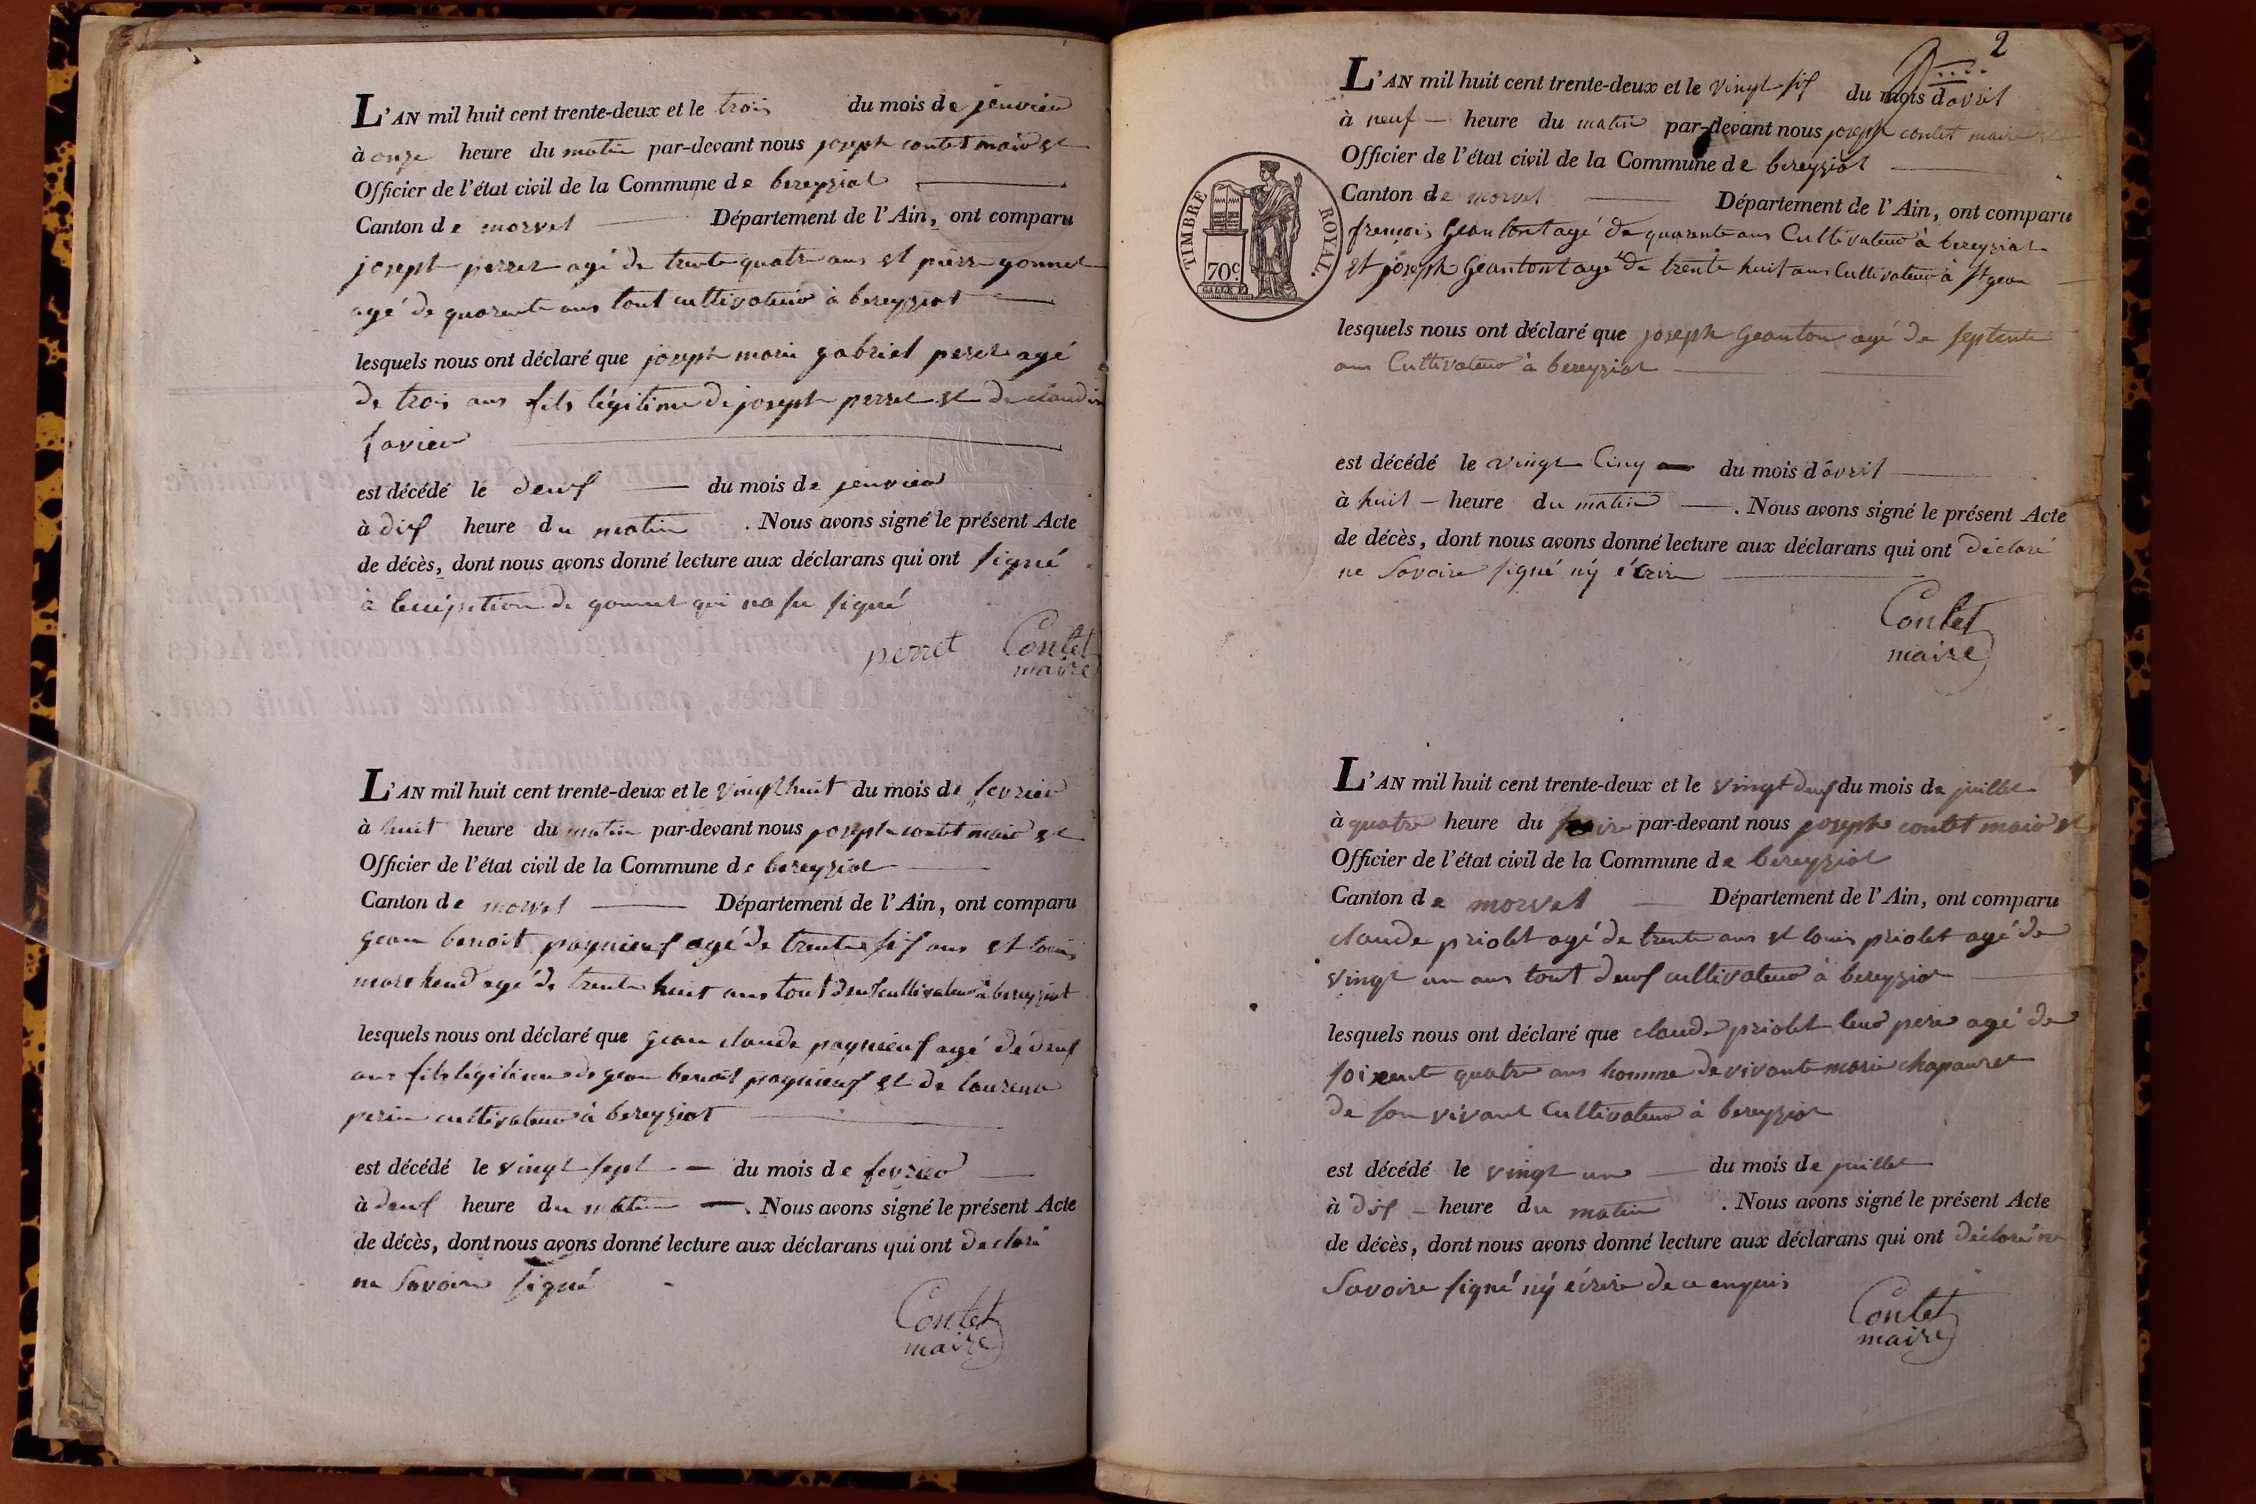 L'AN mil huit cent trente-deux et le trois du mois de jenvier
à onze heure du matin par-devant nous joseph contet maire et
Officier de l'état civil de la Commune de bereyziat
Canton de morvel Département de l'Ain, ont comparu
joseph perret agé de trente quatre ans et pierre gonnet
agé de quarente ans tout cultivateur à bereyziat
lesquels nous ont déclaré que joseph marie gabriel peret agé
de trois ans fils légitime de joseph perret et de claudin
favier
est décédé le deux du mois de jenvier
à dix heure du matin . Nous avons signé le présent Acte
de décès, dont nous avons donné lecture aux déclarans qui ont signé
à de gonnet qui na su signé
perret Contet
maire
L'AN mil huit cent trente-deux et le vingt huit du mois de fevrier
à huit heure du matin par-devant nous joseph contet maire et
Officier de l'état civil de la Commune de bereyziat
Canton de morvel Département de l'Ain, ont comparu
gean benoit pagnieux agé de trente six ans et louis
marchend agé de trente huit ans tout deux cultivateur à bereyziat
lesquels nous ont déclaré que gean claude pagnieux agé de deux
ans fils légitime de gean benoit pagnieux et de laurence
perin cultivateur à bereyziat
est décédé le vingt sept du mois de fevrier
à deux heure du matin . Nous avons signé le présent Acte
de décès, dont nous avons donné lecture aux déclarans qui ont declaré
ne savoire signé
Contet
maire
2
L'AN mil huit cent trente-deux et le vingt six du mois d'avril
à neuf heure du matin par-devant nous joseph contet maire et
Officier de l'état civil de la Commune de bereyziat
Canton de morvel Département de l'Ain, ont comparu
TIMBRE ROYAL.
70c.
fremois Geanton agé de quarente ans Cultivateur à bereyziat
et joseph Geanton agé de trente huit ans Cultivateur à st gean
lesquels nous ont déclaré que joseph Geanton agé de septente
ans Cultivateur à bereyziat
est décédé le vingt Cinq du mois d'avril
à huit heure du matin . Nous avons signé le présent Acte
de décès, dont nous avons donné lecture aux déclarans qui ont déclaré
ne savoire signé ny écrire
Contet
maire
L'AN mil huit cent trente-deux et le vingt deux du mois de juillet
à quatre heure du soire par-devant nous joseph contet maire et
Officier de l'état civil de la Commune de bereyziat
Canton de morvel Département de l'Ain, ont comparu
claude priolet agé de trente ans et louis priolet agé de
vingt un ans tout deux cultivateur à bereyziat
lesquels nous ont déclaré que claude priolet leur pere agé de
soixente quatre ans homme de vivante marie chapauret
de son vivant Cultivateur à bereyziat
est décédé le vingt un du mois de juillet
à dix heure du matin . Nous avons signé le présent Acte
de décès, dont nous avons donné lecture aux déclarans qui ont déclaré ne
Savoire signé ny écrire de ce enquis
Contet
maire